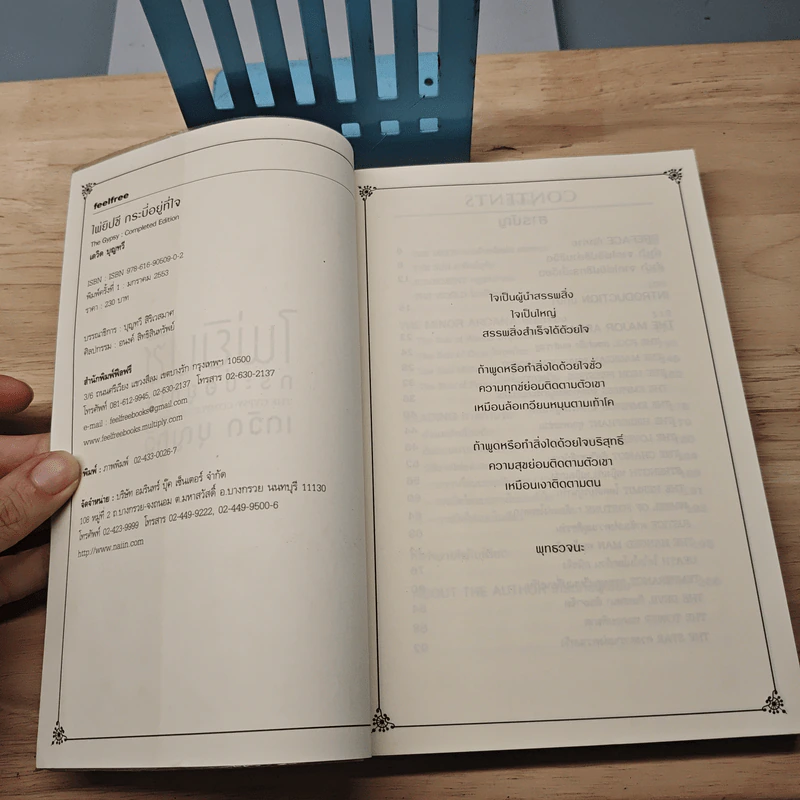 feelfree
ไพ่ยิปซี กระบี่อยู่ที่ใจ
The Gypsy : Completed Edition
เดวิด บุญทวี
ISBN : ISBN 978-616-90509-0-2
พิมพ์ครั้งที่ 1 : มกราคม 2553
ราคา : 230 บาท
บรรณาธิการ : บุญทวี สิริเวสมาศ
ศิลปกรรม : อนงค์ สิทธิสินทรัพย์
สำนักพิมพ์ฟีลฟรี
3/6 ถนนศรีเวียง แขวงสีลม เขตบางรัก กรุงเทพฯ 10500
โทรศัพท์ 081-612-9945, 02-630-2137 โทรสาร 02-630-2137
e-mail : feelfreebooks@gmail.com
www.feelfreebooks.multiply.com
พิมพ์ : ภาพพิมพ์ 02-433-0026-7
จัดจำหน่าย : บริษัท อมรินทร์ บุ๊ค เซ็นเตอร์ จำกัด
108 หมู่ที่ 2 ถ.บางกรวย-จงถนอม ต.มหาสวัสดิ์ อ.บางกรวย นนทบุรี 11130
โทรศัพท์ 02-423-9999 โทรสาร 02-449-9222, 02-449-9500-6
http://www.naiin.com
ใจเป็นผู้นำสรรพสิ่ง
ใจเป็นใหญ่
สรรพสิ่งสำเร็จได้ด้วยใจ
ถ้าพูดหรือทำสิ่งใดด้วยใจชั่ว
ความทุกข์ย่อมติดตามตัวเขา
เหมือนล้อเกวียนหมุนตามเท้าโค
ถ้าพูดหรือทำสิ่งใดด้วยใจบริสุทธิ์
ความสุขย่อมติดตามตัวเขา
เหมือนเงาติดตามตน
พุทธวจนะ